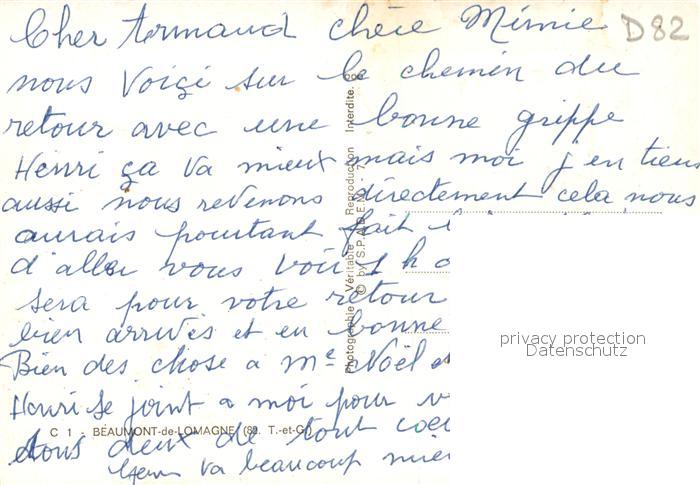 Cher Armand chère Mimie D82
nous voiçi sur le chemin du
retour avec une bonne grippe
Henri ça va mieux mais moi j'en tiens
aussi nous revenons directement cela nous
aurais pourtant fait
d'aller vous voir
sera pour votre retour
bien arrivés et en bonne
Bien des chose a Me Noël
Henri se joint a moi pour
tous deux de tout
va beaucoup
C 1 - BEAUMONT-de-LOMAGNE (82. T.-et-G.)
Photographie Véritable Reproduction Interdite.
© by S.P.A.D.E.M.
privacy protection
Datenschutz